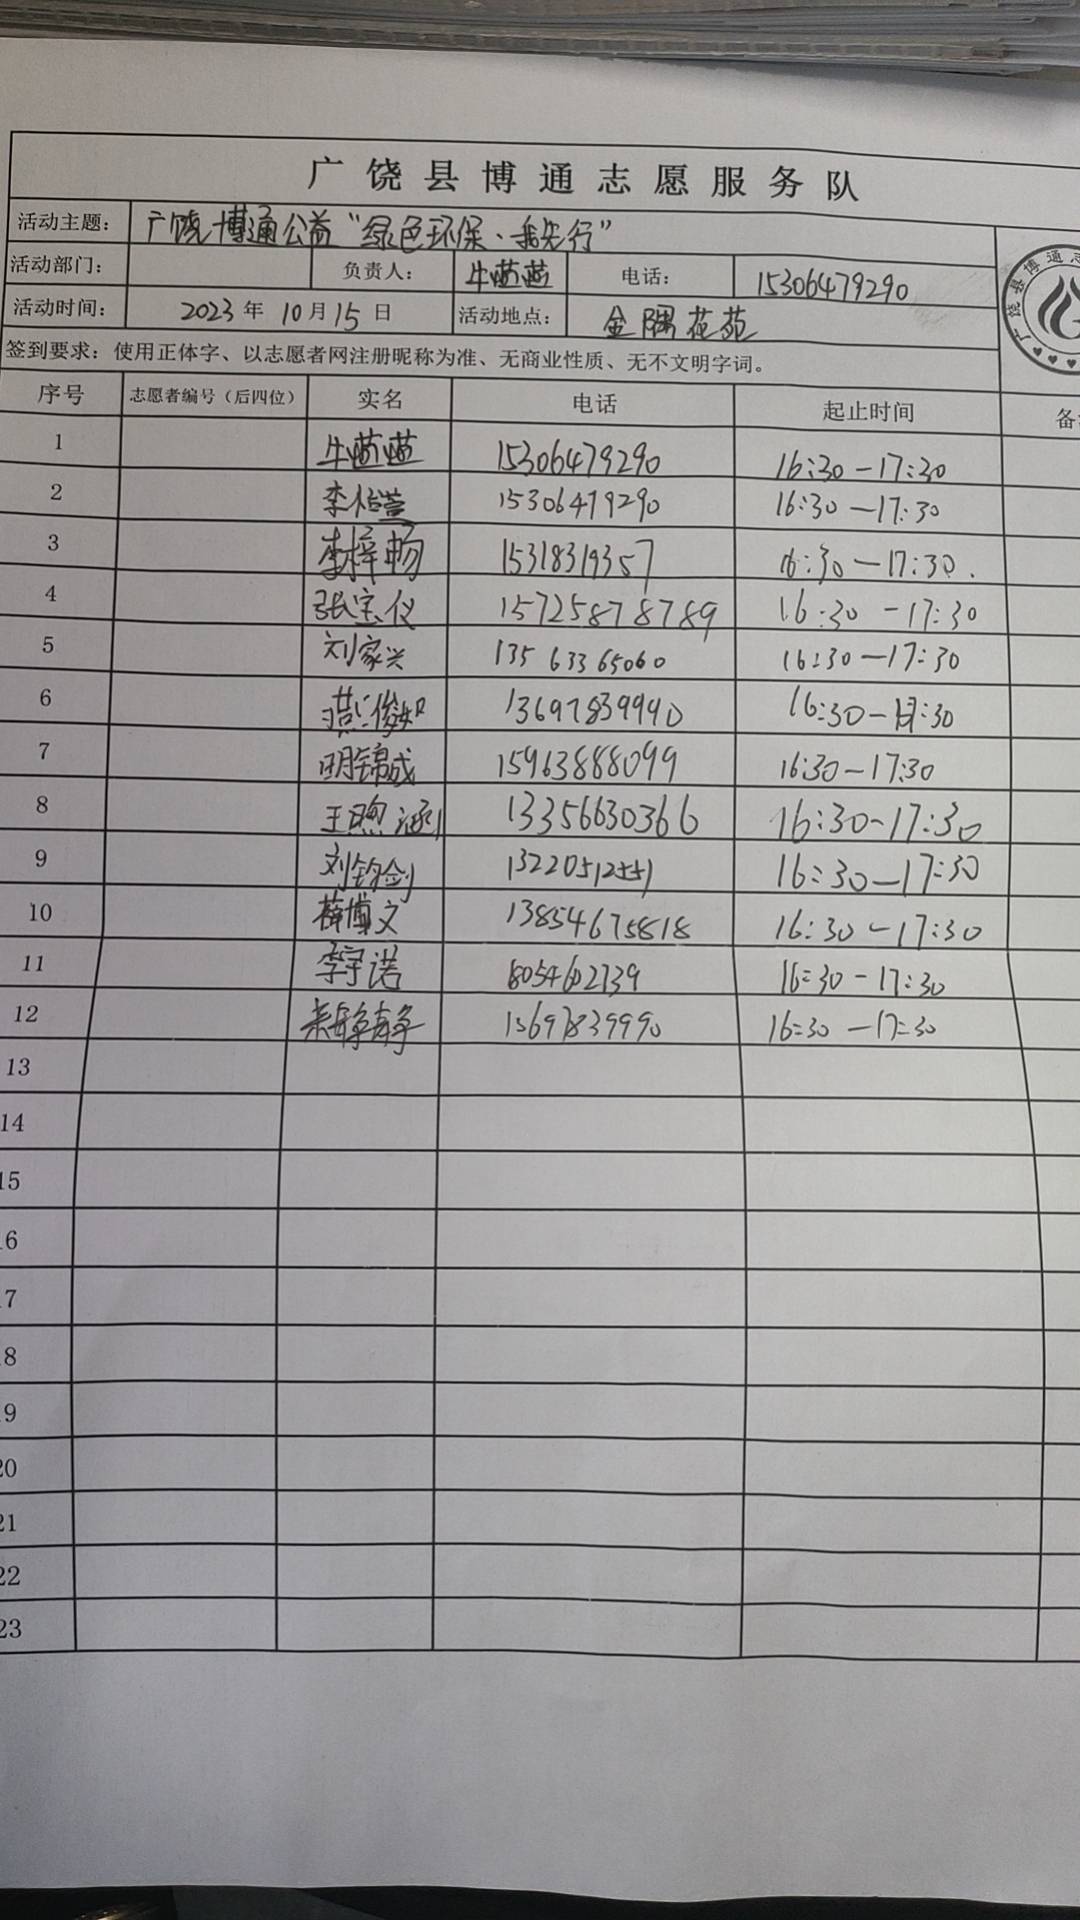 广饶县博通志愿服务队
活动主题： 广饶博通公益“绿色环保、我先行”
活动部门： 负责人： 牛茵茵 电话： 15306479290
活动时间： 2023年10月15日 活动地点： 金隅花苑
签到要求：使用正体字、以志愿者网注册昵称为准、无商业性质、无不文明字词。
序号 志愿者编号（后四位） 实名 电话 起止时间 备
1 牛茵茵 15306479290 16:30-17:30
2 李怡萱 15306479290 16:30-17:30
3 李梓畅 15318319357 16:30-17:30.
4 张宝仪 15725878789 16:30-17:30
5 刘家兴 13563365060 16:30-17:30
6 13697839990 16:30-17:30
7 明锦成 15963888099 16:30-17:30
8 王煦涵 13356630366 16:30-17:30
9 刘钧剑 16:30-17:30
10 薛博文 13854675818 16:30-17:30
11 李宇诺 16:30-17:30
12 13697839990 16:30-17:30
13
14
15
16
17
18
19
20
21
22
23